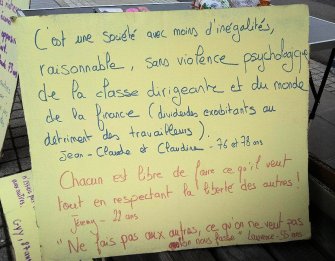 C'est une société avec moins d'inégalités,
raisonnable, sans violence psychologique
de la classe dirigeante et du monde
de la finance (dividendes exorbitants au
détriment des travailleurs).
Jean-Claude et Claudine - 76 et 78 ans
Chacun est libre de faire ce qu'il veut
tout en respectant la liberté des autres !
22 ans
"Ne fais pas aux autres, ce qu'on ne veut pas
nous fasse" Laurence - 55 ans